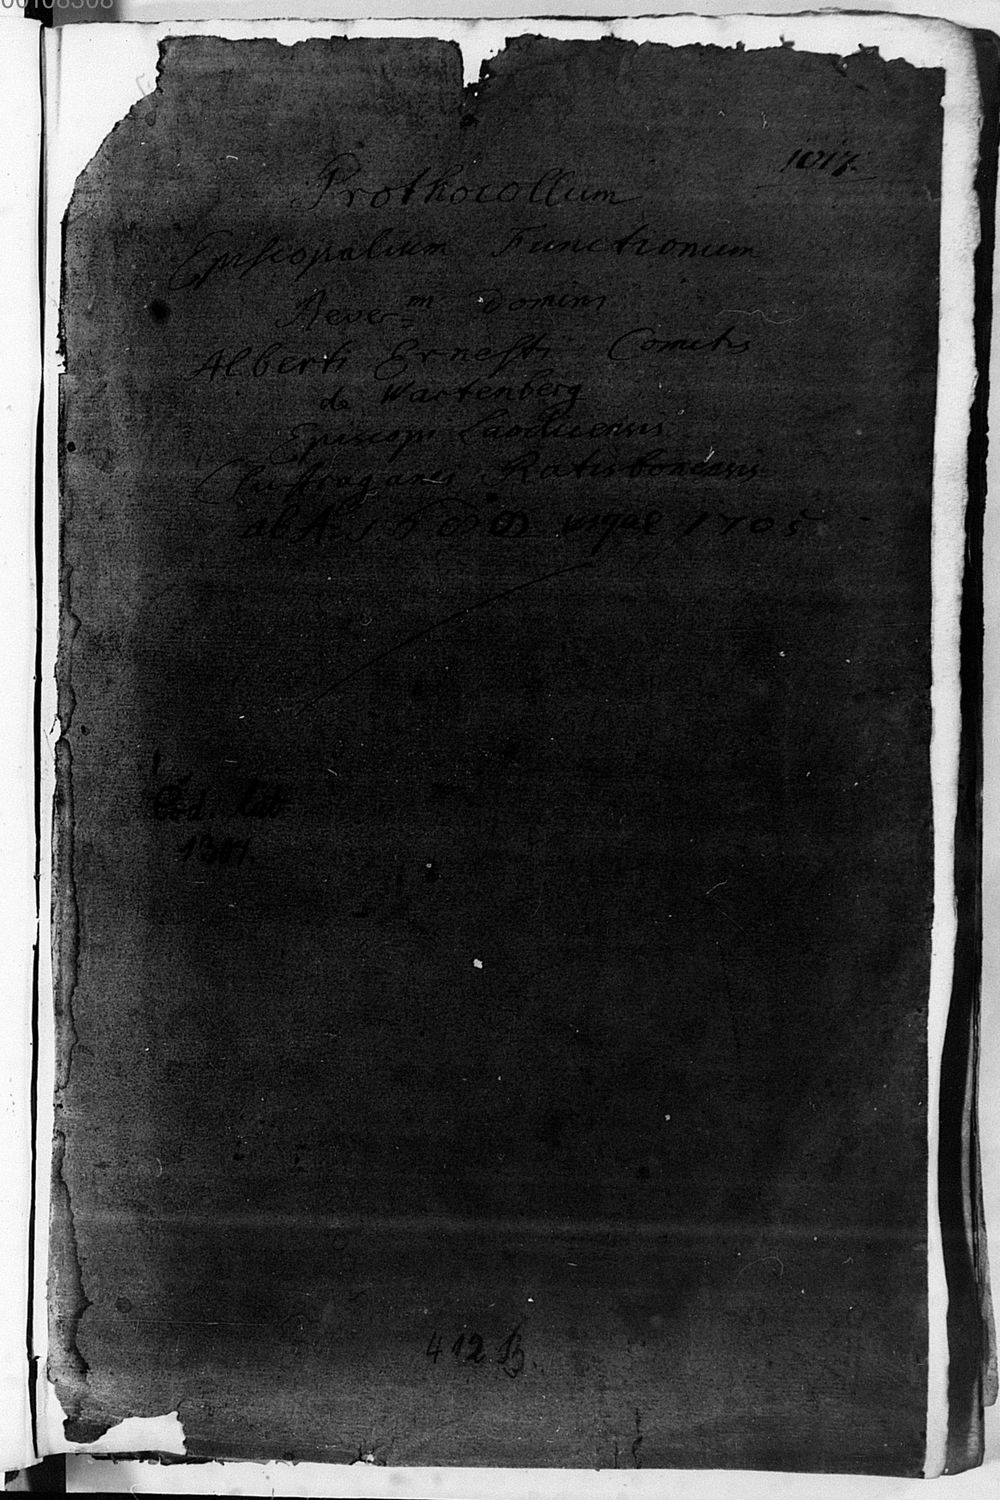 00108308
1017.
Prothocollum
Episcopalium Functionum
Rever:m Domini
Alberti Ernesti Comitis
de Wartenberg
Episcopi Laodicensis
Suffraganei Ratisbonensis
ab A. 1688 usque 1705
Cod. lat.
1307.
412 B.